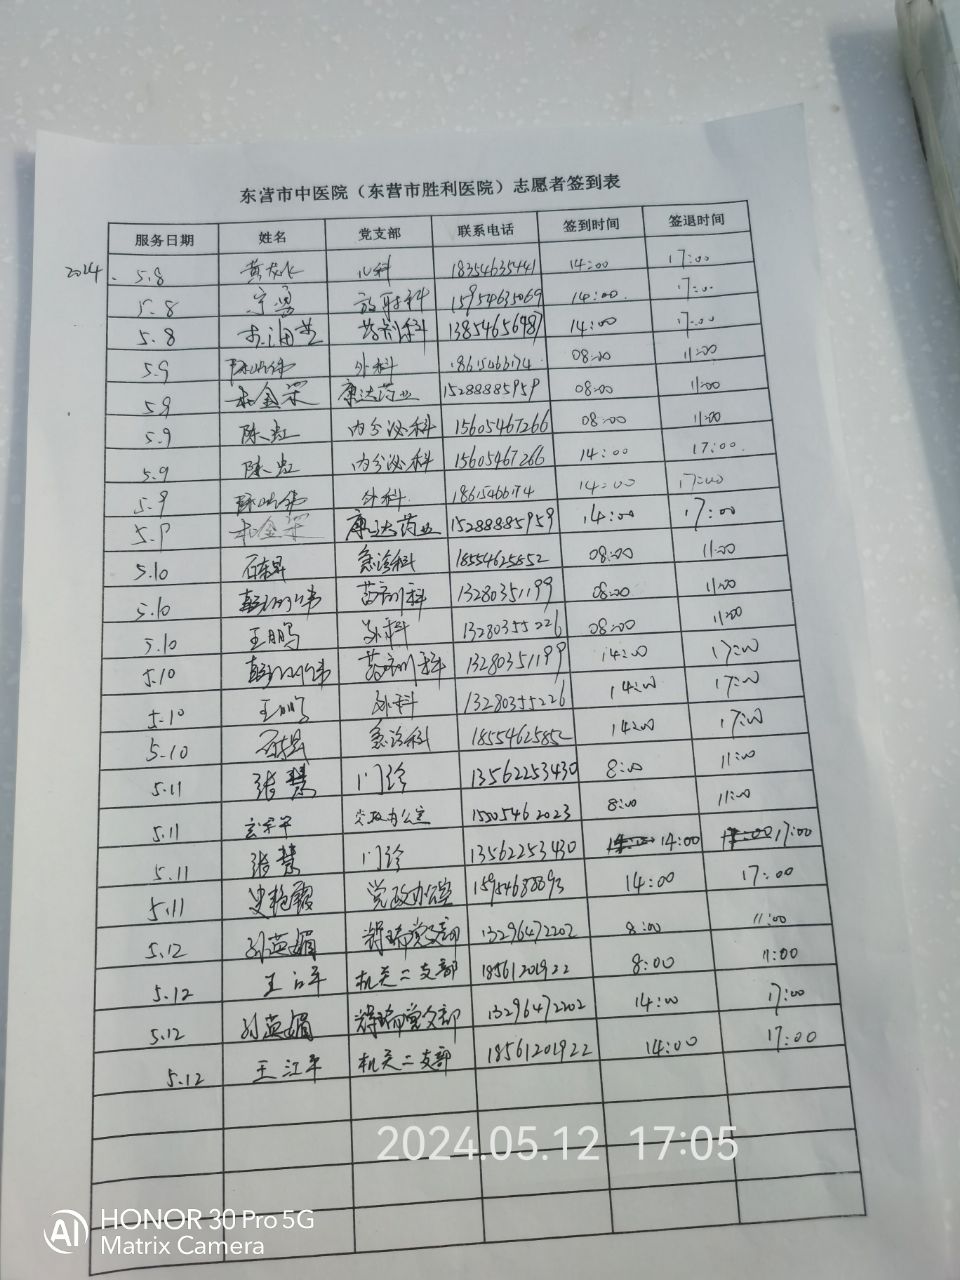 东营市中医院（东营市胜利医院）志愿者签到表
服务日期 姓名 党支部 联系电话 签到时间 签退时间
2024. 5.8 儿科 18354635441 14:00 17:00
5.8 宁勇 放射科 15954635069 14:00 17:00
5.8 药剂科 13854656487 14:00 17:00
5.9 外科 18615466174 08:00 11:00
5.9 康达药业 15288885959 08:00 11:00
5.9 陈虹 内分泌科 15605467266 08:00 11:00
5.9 陈虹 内分泌科 15605467266 14:00 17:00
5.9 外科 18615466174 14:00 17:00
5.9 康达药业 15288885959 14:00 17:00
5.10 急诊科 18554625852 08:00 11:00
5.10 药剂科 13280351199 08:00 11:00
5.10 王鹏 外科 13280355226 08:00 11:00
5.10 药剂科 13280351199 14:00 17:00
5.10 王鹏 外科 13280355226 14:00 17:00
5.10 急诊科 18554625852 14:00 17:00
5.11 张慧 门诊 13562253430 8:00 11:00
5.11 党政办公室 15505462023 8:00 11:00
5.11 张慧 门诊 13562253430 14:00 17:00
5.11 史艳霞 党政办公室 15954688893 14:00 17:00
5.12 孙英娟 党支部 13296472202 8:00 11:00
5.12 王江平 机关二支部 18561201922 8:00 11:00
5.12 孙英娟 党支部 13296472202 14:00 17:00
5.12 王江平 机关二支部 18561201922 14:00 17:00
2024.05.12 17:05
HONOR 30 Pro 5G
Matrix Camera